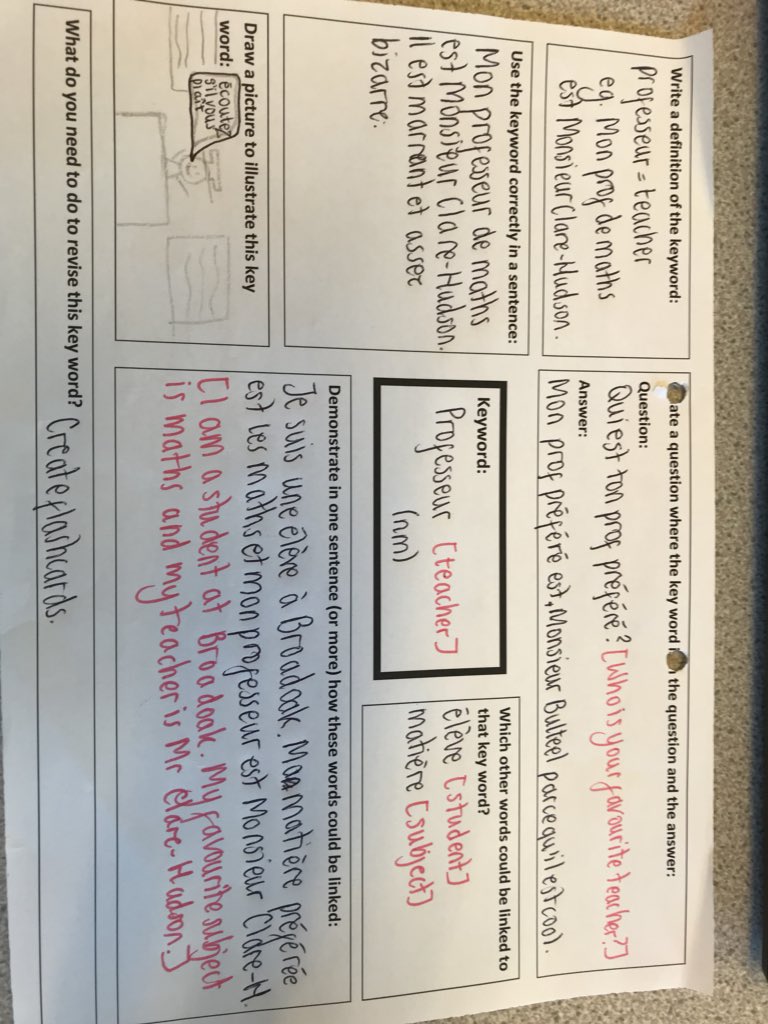 Write a definition of the keyword:
professeur = teacher
eg. Mon prof de maths
est Monsieur Clare-Hudson.
ate a question where the key word i the question and the answer:
Question:
Qui est ton prof préféré? [Who is your favourite teacher?]
Answer:
Mon prof préféré est, Monsieur Bulteel parcequ'il est cool.
Use the keyword correctly in a sentence:
Mon professeur de maths
est Monsieur Clare-Hudson.
il est marrant et assez
bizarre.
Keyword:
Professeur [teacher]
(nm)
Which other words could be linked to
that key word?
élève [student]
matière [subject]
Draw a picture to illustrate this key
word:
écoutez
s'il vous
plait
Demonstrate in one sentence (or more) how these words could be linked:
Je suis une élève à Broadoak. Ma matière préférée
est les maths et mon professeur est Monsieur Clare-H.
[I am a student at Broadoak. My favourite subject
is maths and my teacher is Mr Clare-Hudson.]
What do you need to do to revise this key word? Create flashcards.